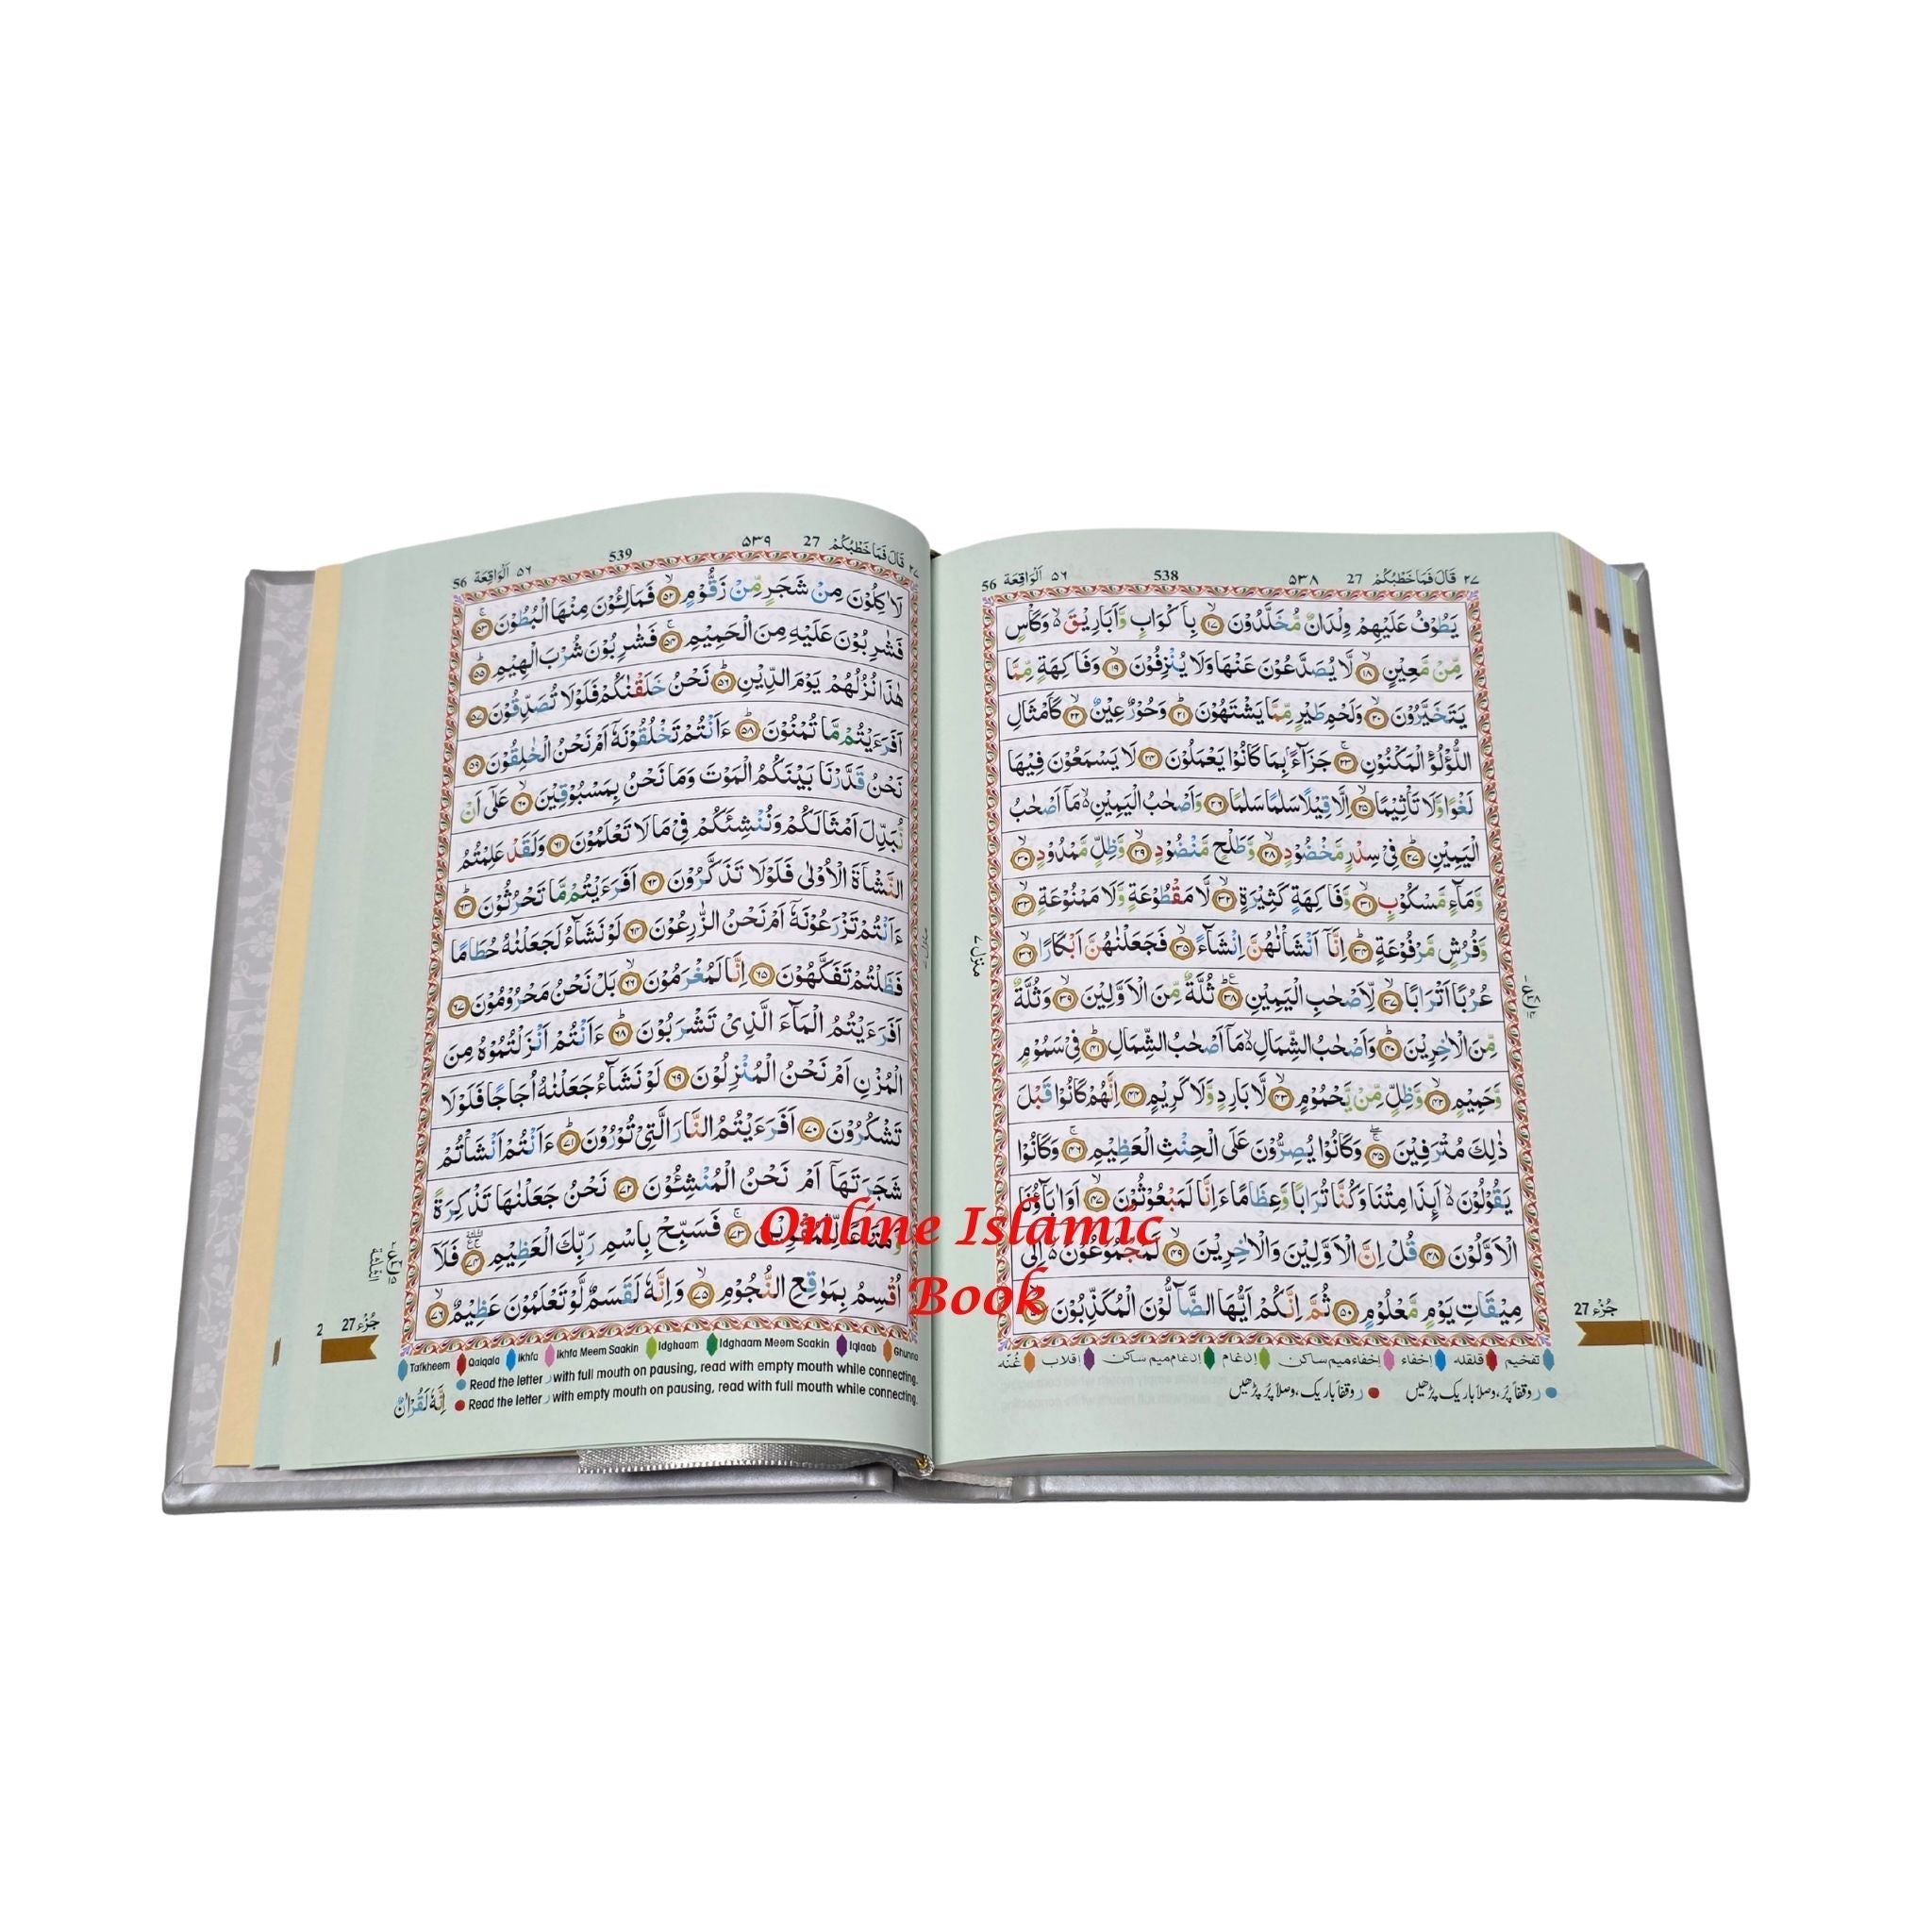 ٢٧ قَالَ فَمَا خَطْبُكُمْ 27 ٥٣٨ 538 ٥٦ اَلْوَاقِعَة 56
يَطُوْفُ عَلَيْهِمْ وِلْدَانٌ مُّخَلَّدُوْنَ ۙ‏ ١٧ بِاَكْوَابٍ وَّاَبَارِيْقَ ۙ وَكَاْسٍ
مِّنْ مَّعِيْنٍ ۙ‏ ١٨ لَّا يُصَدَّعُوْنَ عَنْهَا وَلَا يُنْزِفُوْنَ ۙ‏ ١٩ وَفَاكِهَةٍ مِّمَّا
يَتَخَيَّرُوْنَ ۙ‏ ٢٠ وَلَحْمِ طَيْرٍ مِّمَّا يَشْتَهُوْنَ ؕ‏ ٢١ وَحُوْرٌ عِيْنٌ ۙ‏ ٢٢ كَاَمْثَالِ
اللُّؤْلُؤِ الْمَكْنُوْنِ ۚ‏ ٢٣ جَزَآءًۢ بِمَا كَانُوْا يَعْمَلُوْنَ ‏ ٢٤ لَا يَسْمَعُوْنَ فِيْهَا
لَغْوًا وَّلَا تَاْثِيْمًا ۙ‏ ٢٥ اِلَّا قِيْلًا سَلٰمًا سَلٰمًا ‏ ٢٦ وَاَصْحٰبُ الْيَمِيْنِ ۙ مَاۤ اَصْحٰبُ
الْيَمِيْنِ ؕ‏ ٢٧ فِيْ سِدْرٍ مَّخْضُوْدٍ ۙ‏ ٢٨ وَّطَلْحٍ مَّنْضُوْدٍ ۙ‏ ٢٩ وَّظِلٍّ مَّمْدُوْدٍ ۙ‏ ٣٠
وَّمَآءٍ مَّسْكُوْبٍ ۙ‏ ٣١ وَّفَاكِهَةٍ كَثِيْرَةٍ ۙ‏ ٣٢ لَّا مَقْطُوْعَةٍ وَّلَا مَمْنُوْعَةٍ ۙ‏ ٣٣
وَّفُرُشٍ مَّرْفُوْعَةٍ ؕ‏ ٣٤ اِنَّاۤ اَنْشَاْنٰهُنَّ اِنْشَآءً ۙ‏ ٣٥ فَجَعَلْنٰهُنَّ اَبْكَارًا ۙ‏ ٣٦
عُرُبًا اَتْرَابًا ۙ‏ ٣٧ لِّاَصْحٰبِ الْيَمِيْنِ ؕ‏ ٣٨ ثُلَّةٌ مِّنَ الْاَوَّلِيْنَ ۙ‏ ٣٩ وَثُلَّةٌ
مِّنَ الْاٰخِرِيْنَ ؕ‏ ٤٠ وَاَصْحٰبُ الشِّمَالِ ۙ مَاۤ اَصْحٰبُ الشِّمَالِ ؕ‏ ٤١ فِيْ سَمُوْمٍ
وَّحَمِيْمٍ ۙ‏ ٤٢ وَّظِلٍّ مِّنْ يَّحْمُوْمٍ ۙ‏ ٤٣ لَّا بَارِدٍ وَّلَا كَرِيْمٍ ‏ ٤٤ اِنَّهُمْ كَانُوْا قَبْلَ
ذٰلِكَ مُتْرَفِيْنَ ۚ‏ ٤٥ وَكَانُوْا يُصِرُّوْنَ عَلَى الْحِنْثِ الْعَظِيْمِ ۚ‏ ٤٦ وَكَانُوْا
يَقُوْلُوْنَ ۙ اَئِذَا مِتْنَا وَكُنَّا تُرَابًا وَّعِظَامًا ءَاِنَّا لَمَبْعُوْثُوْنَ ۙ‏ ٤٧ اَوَاٰبَآؤُنَا
الْاَوَّلُوْنَ ‏ ٤٨ قُلْ اِنَّ الْاَوَّلِيْنَ وَالْاٰخِرِيْنَ ۙ‏ ٤٩ لَمَجْمُوْعُوْنَ ۙ اِلٰى
مِيْقَاتِ يَوْمٍ مَّعْلُوْمٍ ‏ ٥٠ ثُمَّ اِنَّكُمْ اَيُّهَا الضَّآلُّوْنَ الْمُكَذِّبُوْنَ ۙ‏
منزل ٧
جُزْء 27
تفخيم قلقله إخفاء إخفاءميم ساكن إدغام إدغام ميم ساكن إقلاب غُنّه
ر وقفاً پُر، وصلاً باریک پڑھیں ر وقفاً باریک، وصلاً پُر پڑھیں
٢٧ قَالَ فَمَا خَطْبُكُمْ 27 ٥٣٩ 539 ٥٦ اَلْوَاقِعَة 56
لَاٰكِلُوْنَ مِنْ شَجَرٍ مِّنْ زَقُّوْمٍ ۙ‏ ٥٢ فَمَالِـُٔوْنَ مِنْهَا الْبُطُوْنَ ۚ‏ ٥٣
فَشٰرِبُوْنَ عَلَيْهِ مِنَ الْحَمِيْمِ ۚ‏ ٥٤ فَشٰرِبُوْنَ شُرْبَ الْهِيْمِ ؕ‏ ٥٥
هٰذَا نُزُلُهُمْ يَوْمَ الدِّيْنِ ؕ‏ ٥٦ نَحْنُ خَلَقْنٰكُمْ فَلَوْلَا تُصَدِّقُوْنَ ‏ ٥٧
اَفَرَءَيْتُمْ مَّا تُمْنُوْنَ ؕ‏ ٥٨ ءَاَنْتُمْ تَخْلُقُوْنَهٗۤ اَمْ نَحْنُ الْخٰلِقُوْنَ ‏ ٥٩
نَحْنُ قَدَّرْنَا بَيْنَكُمُ الْمَوْتَ وَمَا نَحْنُ بِمَسْبُوْقِيْنَ ۙ‏ ٦٠ عَلٰۤى اَنْ
نُّبَدِّلَ اَمْثَالَكُمْ وَنُنْشِئَكُمْ فِيْ مَا لَا تَعْلَمُوْنَ ‏ ٦١ وَلَقَدْ عَلِمْتُمُ
النَّشْاَةَ الْاُوْلٰى فَلَوْلَا تَذَكَّرُوْنَ ‏ ٦٢ اَفَرَءَيْتُمْ مَّا تَحْرُثُوْنَ ؕ‏ ٦٣
ءَاَنْتُمْ تَزْرَعُوْنَهٗۤ اَمْ نَحْنُ الزّٰرِعُوْنَ ‏ ٦٤ لَوْ نَشَآءُ لَجَعَلْنٰهُ حُطَامًا
فَظَلْتُمْ تَفَكَّهُوْنَ ‏ ٦٥ اِنَّا لَمُغْرَمُوْنَ ۙ‏ ٦٦ بَلْ نَحْنُ مَحْرُوْمُوْنَ ‏ ٦٧
اَفَرَءَيْتُمُ الْمَآءَ الَّذِيْ تَشْرَبُوْنَ ؕ‏ ٦٨ ءَاَنْتُمْ اَنْزَلْتُمُوْهُ مِنَ
الْمُزْنِ اَمْ نَحْنُ الْمُنْزِلُوْنَ ‏ ٦٩ لَوْ نَشَآءُ جَعَلْنٰهُ اُجَاجًا فَلَوْلَا
تَشْكُرُوْنَ ‏ ٧٠ اَفَرَءَيْتُمُ النَّارَ الَّتِيْ تُوْرُوْنَ ؕ‏ ٧١ ءَاَنْتُمْ اَنْشَاْتُمْ
شَجَرَتَهَاۤ اَمْ نَحْنُ الْمُنْشِـُٔوْنَ ‏ ٧٢ نَحْنُ جَعَلْنٰهَا تَذْكِرَةً
وَّمَتَاعًا لِّلْمُقْوِيْنَ ۚ‏ ٧٣ فَسَبِّحْ بِاسْمِ رَبِّكَ الْعَظِيْمِ ‏ ٧٤ فَلَاۤ
اُقْسِمُ بِمَوٰقِعِ النُّجُوْمِ ۙ‏ ٧٥ وَاِنَّهٗ لَقَسَمٌ لَّوْ تَعْلَمُوْنَ عَظِيْمٌ ۙ‏ ٧٦
جُزْء 27 2
Tafkheem Qalqala Ikhfa Ikhfa Meem Saakin Idghaam Idghaam Meem Saakin Iqlaab Ghunna
Read the letter ر with full mouth on pausing, read with empty mouth while connecting.
Read the letter ر with empty mouth on pausing, read with full mouth while connecting.
اِنَّهٗ لَقُرْاٰنٌ
Online Islamic
Book